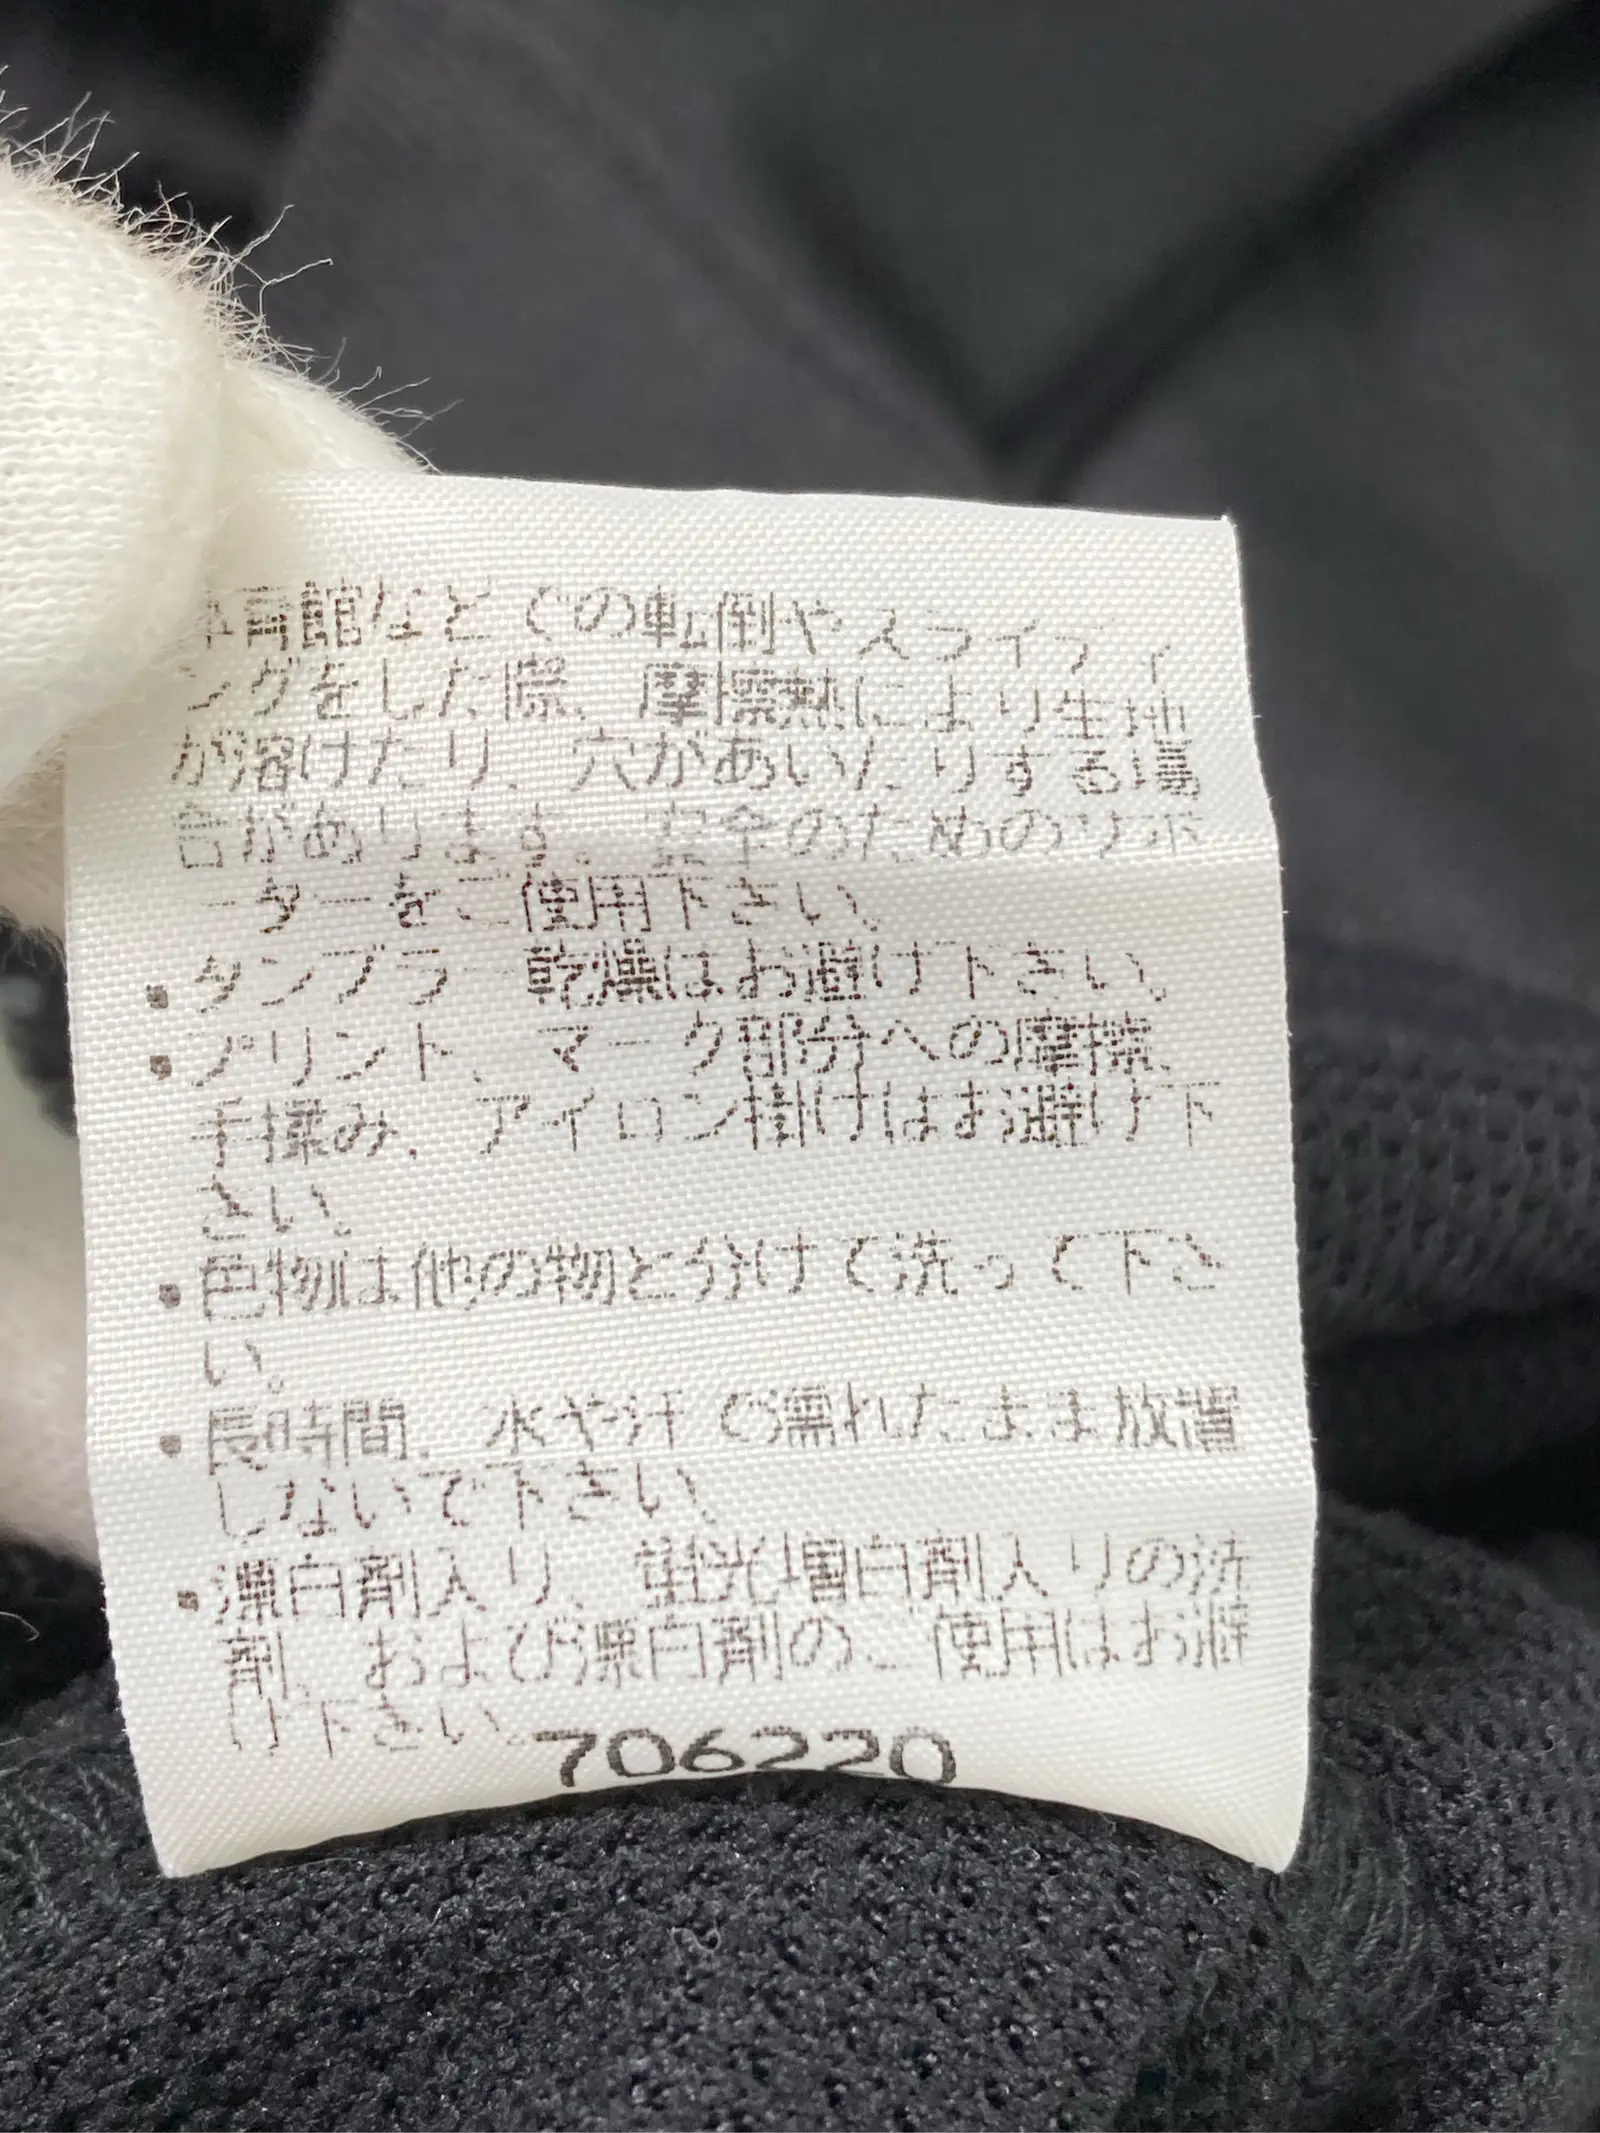 体育館などでの転倒やスライディ
ングをした際、摩擦熱により生地
が溶けたり、穴があいたりする場
合があります。安全のためのサポ
ーターをご使用下さい。
・タンブラー乾燥はお避け下さい。
・プリント、マーク部分への摩擦、
手揉み、アイロン掛けはお避け下
さい。
・色物は他の物と分けて洗って下さ
い。
・長時間、水や汗で濡れたまま放置
しないで下さい。
・漂白剤入り、蛍光増白剤入りの洗
剤、および漂白剤のご使用はお避
け下さい。
706220